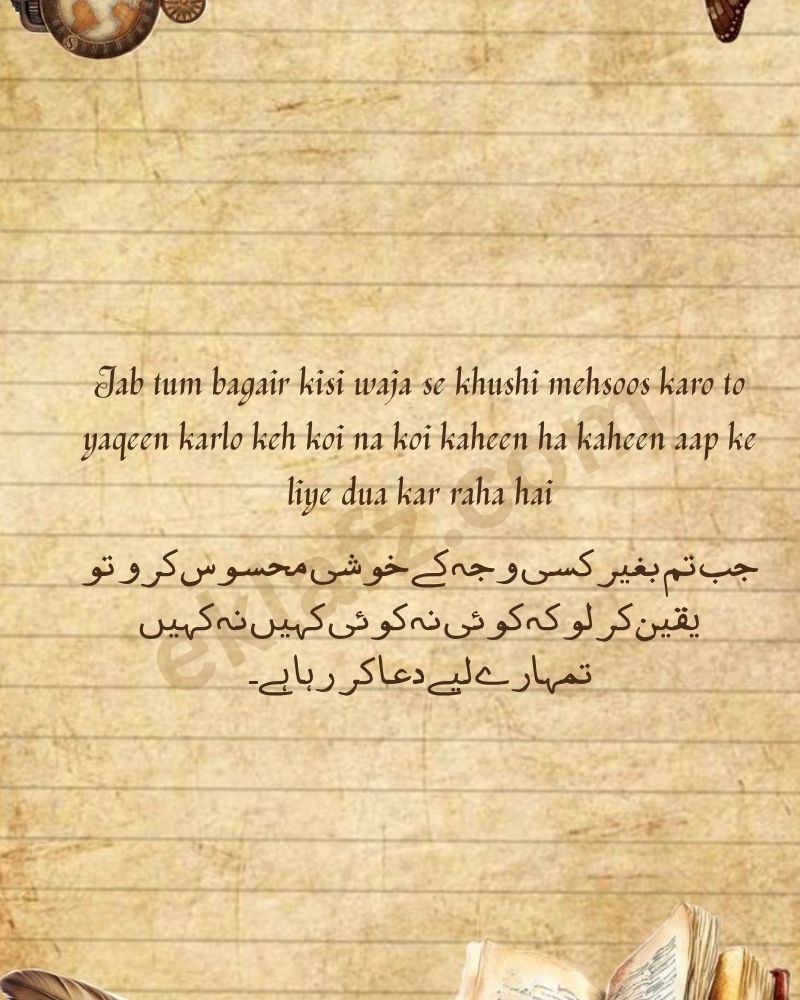 Jab tum bagair kisi waja se khushi mehsoos karo to
yaqeen karlo keh koi na koi kaheen ha kaheen aap ke
liye dua kar raha hai
جب تم بغیر کسی وجہ کے خوشی محسوس کرو تو
یقین کر لو کہ کوئی نہ کوئی کہیں نہ کہیں
تمہارے لیے دعا کر رہا ہے۔
eklafz.com